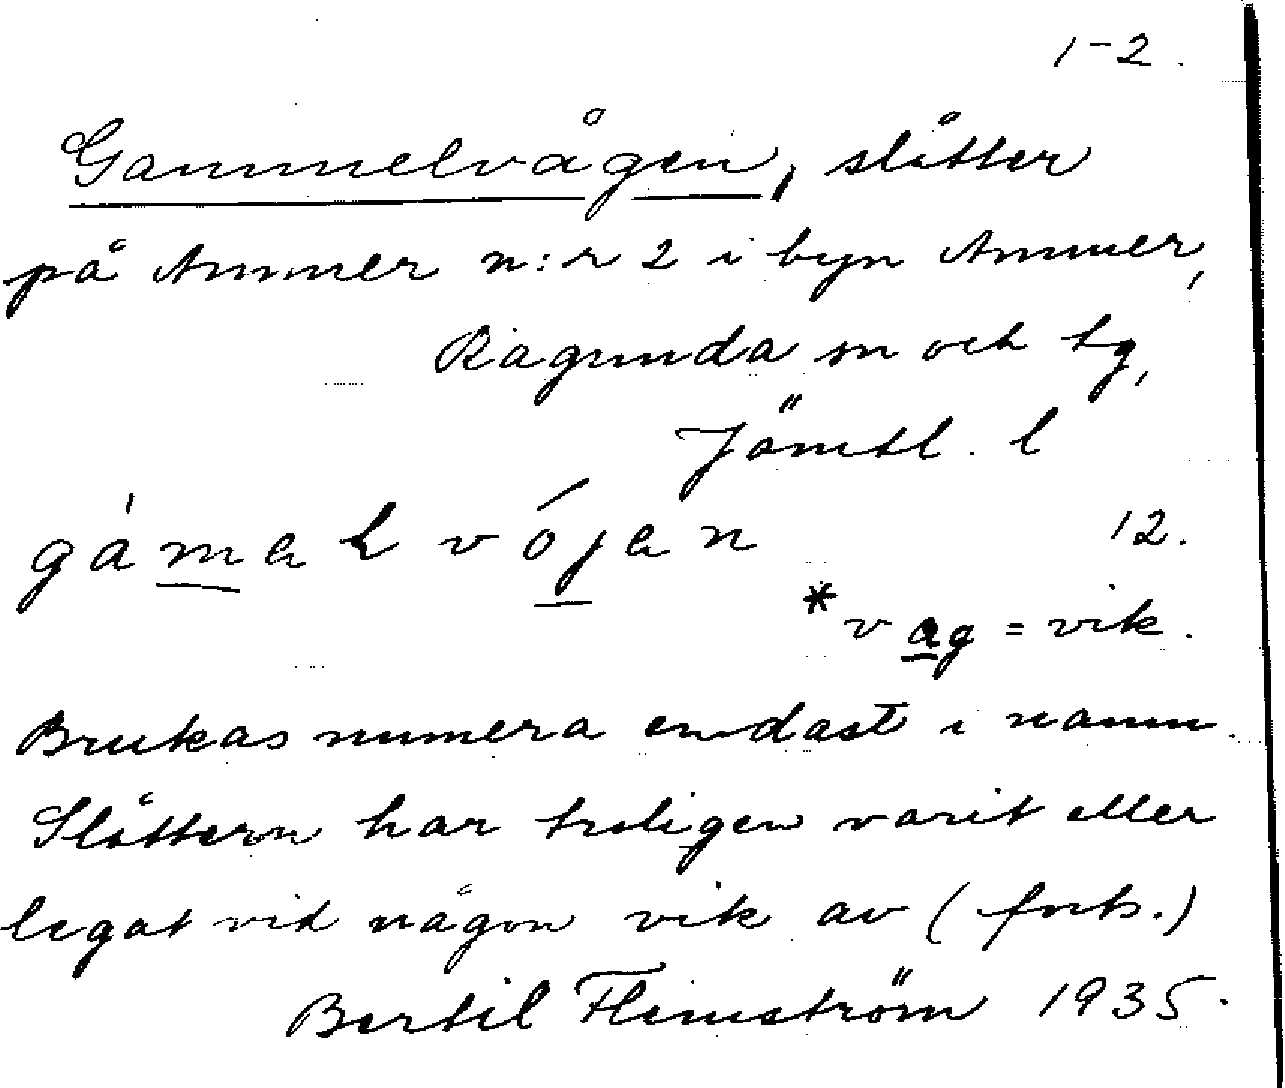 1-2.
Gammelvågen, slåtter
på Ammer n:r 2 i byn Ammer,
Ragunda sn och tg,
Jämtl. l
gámaL vójan
12.
*vag = vik.
Brukas numera endast i namn.
Slåttern har troligen varit eller
legat vid någon vik av (forts.)
Bertil Flemström 1935.